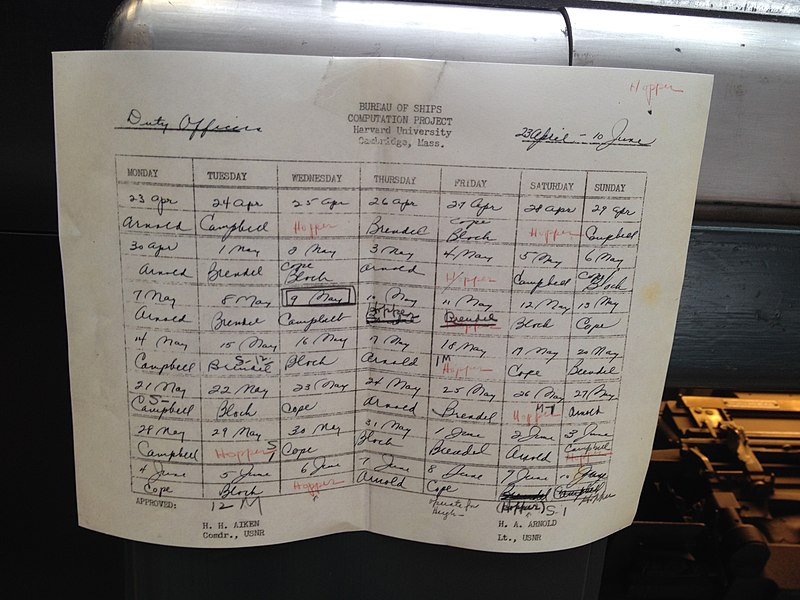 Hopper
BUREAU OF SHIPS
COMPUTATION PROJECT
Harvard University
Cambridge, Mass.
Duty Officer
23 April - 10 June
MONDAY TUESDAY WEDNESDAY THURSDAY FRIDAY SATURDAY SUNDAY
23 Apr 24 Apr 25 Apr 26 Apr 27 Apr 28 Apr 29 Apr
Arnold Campbell Hopper Brendel Cope Bloch Hopper Campbell
30 Apr 1 May 2 May 3 May 4 May 5 May 6 May
Arnold Brendel Cope Bloch Arnold Hopper Campbell Cope Bloch
7 May 8 May 9 May 10 May 11 May 12 May 13 May
Arnold Brendel Campbell Hopper Brendel Bloch Cope
14 May 15 May 16 May 17 May 18 May 19 May 20 May
Campbell Brendel Bloch Arnold Hopper Cope Brendel
21 May 22 May 23 May 24 May 25 May 26 May 27 May
Campbell Bloch Cope Arnold Brendel Hopper Arnold
28 May 29 May 30 May 31 May 1 June 2 June 3 June
Campbell Hopper Cope Bloch Brendel Arnold Campbell
4 June 5 June 6 June 7 June 8 June 9 June 10 June
Cope Bloch Hopper Arnold Cope (Hopper) Hopper
APPROVED: 12 M S 1
H. H. AIKEN H. A. ARNOLD
Comdr., USNR Lt., USNR